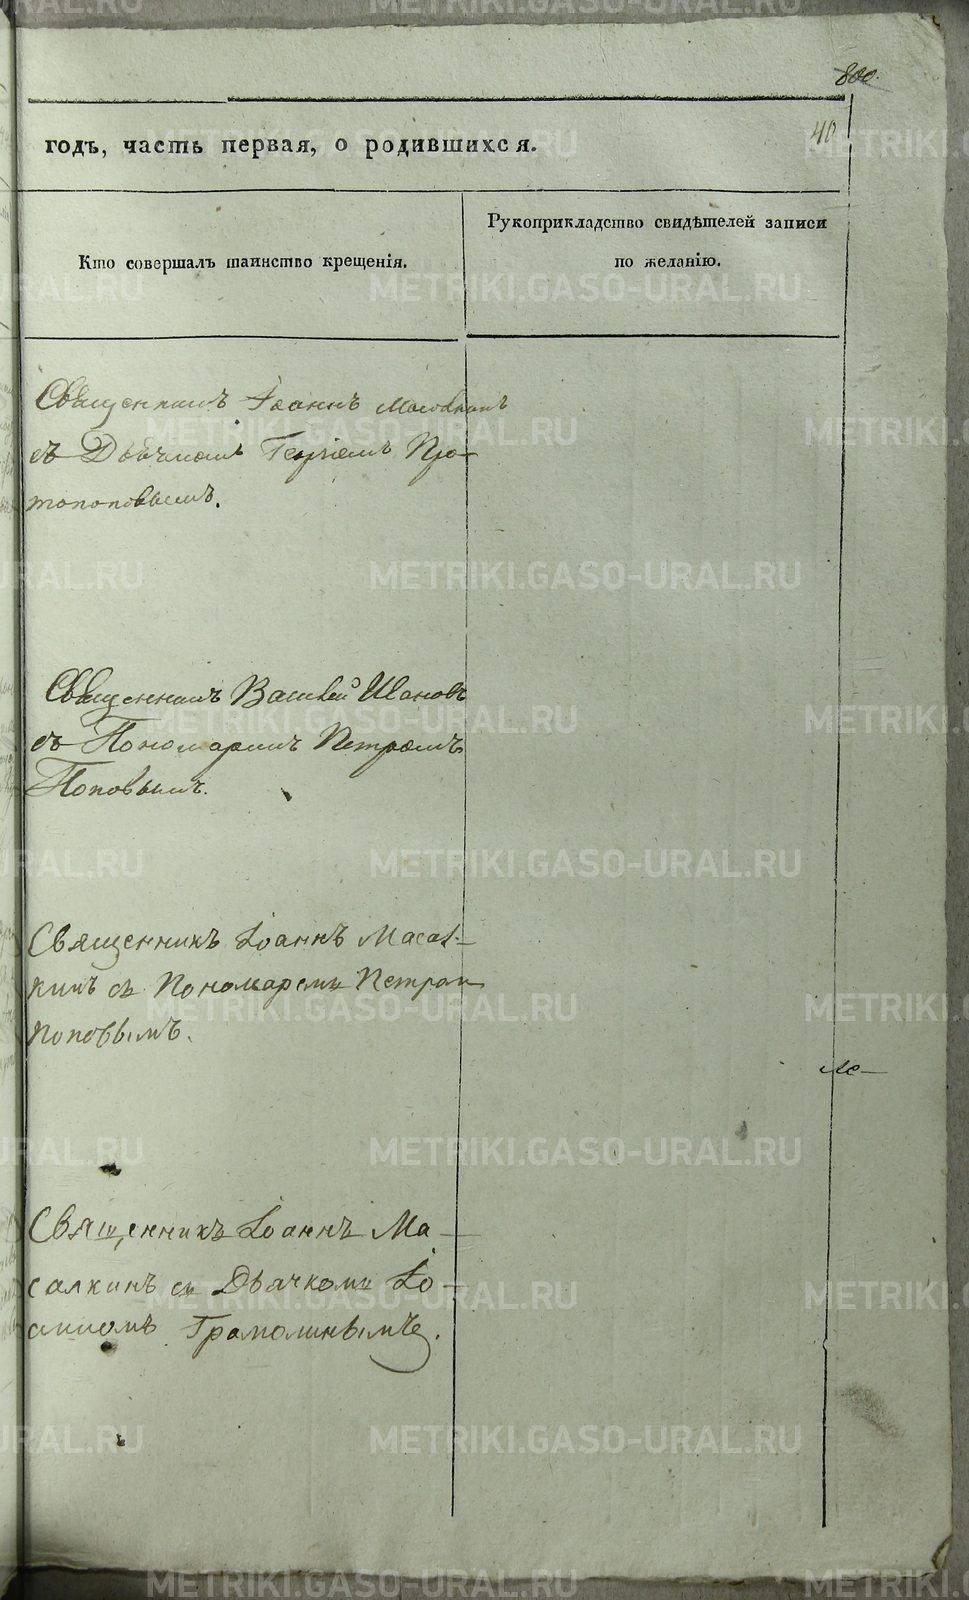 800.
40
годъ, часть первая, о родившихся.
Кто совершалъ таинство крещенія.
Рукоприкладство свидѣтелей записи
по желанію.
Священникъ Іоаннъ Масалкинъ
съ Дьячкомъ Георгіемъ Про-
топоповымъ.
Священникъ Василей Ивановъ
съ Пономаремъ Петромъ
Поповымъ.
Священникъ Іоаннъ Масал-
кинъ съ Пономаремъ Петромъ
Поповымъ.
Священникъ Іоаннъ Ма-
салкинъ съ Дьячкомъ Іо-
анномъ Грамолинымъ.
METRIKI.GASO-URAL.RU